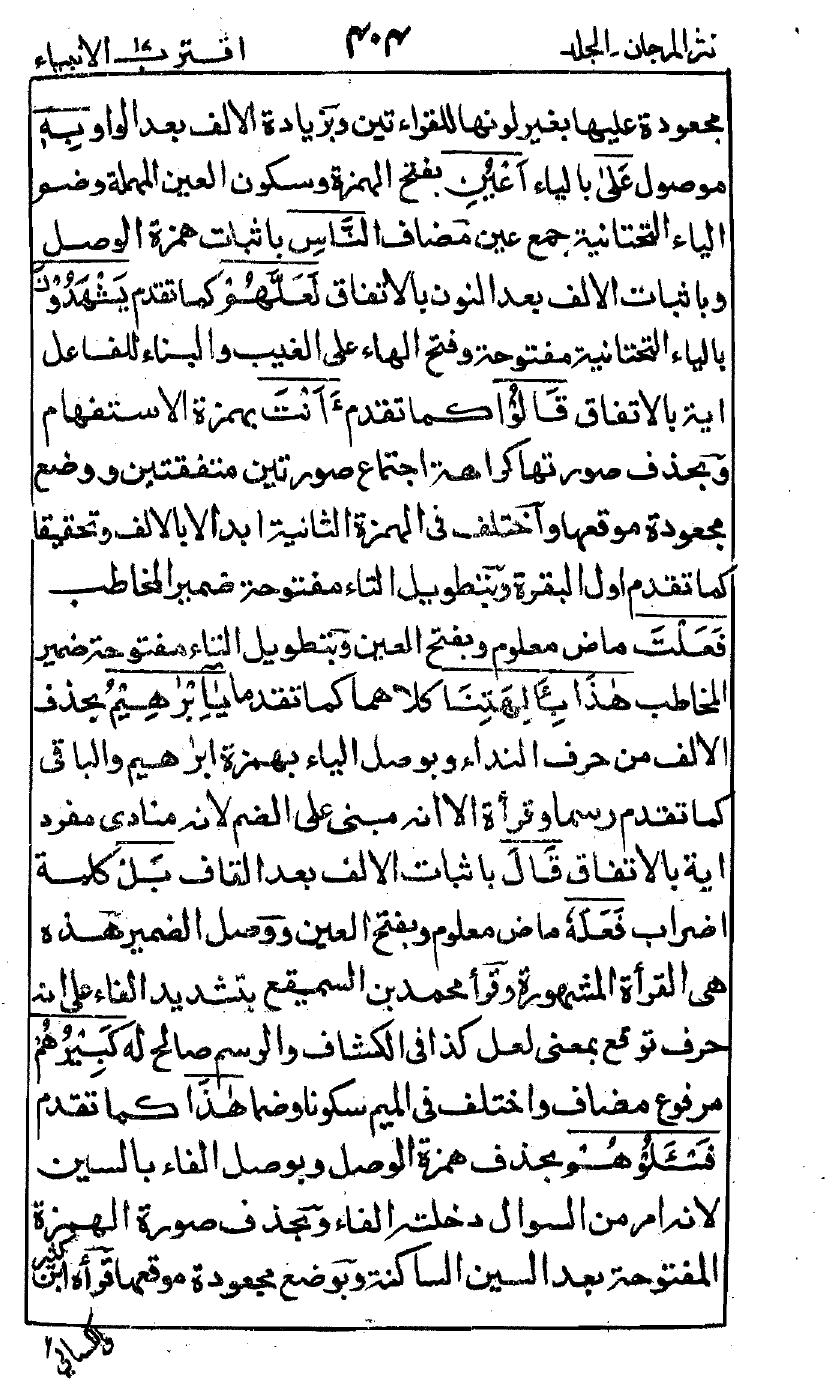 نثر المرجان - الجلد ٤٠٤ اقترب ١٧ الانبياء
مجعودة عليها بغير لونها للقراءتين وبزيادة الالف بعد الواو بِهٖ
موصول عَلىٰ بالياء اَعْيُنِ بفتح الهمزة وسكون العين المهملة وضم
الياء التحتانية جمع عين مضاف النَّاسِ باثبات همزة الوصل
وباثبات الالف بعد النون بالاتفاق لَعَلَّهُمْ كما تقدم يَشْهَدُوْنَ
بالياء التحتانية مفتوحة وفتح الهاء على الغيب والبناء للفاعل
اية بالاتفاق قَالُوْا كما تقدم ءَاَنْتَ بهمزة الاستفهام
وبحذف صورتها كراهة اجتماع صورتين متفقتين ووضع
مجعودة موقعها واختلف فى الهمزة الثانية ابدالا بالالف وتحقيقا
كما تقدم اول البقرة وبتطويل التاء مفتوحة ضمير المخاطب
فَعَلْتَ ماض معلوم وبفتح العين وبتطويل التاء مفتوحة ضمير
المخاطب هٰذَا بِـَٔالِهَتِنَا كلاهما كما تقدما يٰاِبْرٰهِيْمُ بحذف
الالف من حرف النداء وبوصل الياء بهمزة ابرٰهيم والباقى
كما تقدم رسما وقرأة الا انه مبنى على الضم لانه منادى مفرد
اية بالاتفاق قَالَ باثبات الالف بعد القاف بَلْ كلمة
اضراب فَعَلَهٗ ماض معلوم وبفتح العين ووصل الضمير هذه
هى القرأة المشهورة وقرأ محمد بن السميقع بتشديد الفاء على انه
حرف توقع بمعنى لعل كذا فى الكشاف والرسم صالح له كَبِيْرُهُمْ
مرفوع مضاف واختلف فى الميم سكونا وضما هٰذَا كما تقدم
فَسْـَٔلُوْهُمْ بحذف همزة الوصل وبوصل الفاء بالسين
لانه امر من السوال دخلته الفاء وبحذف صورة الهمزة
المفتوحة بعد السين الساكنة وبوضع مجعودة موقعها قرأه ابن كثير
والكسائي